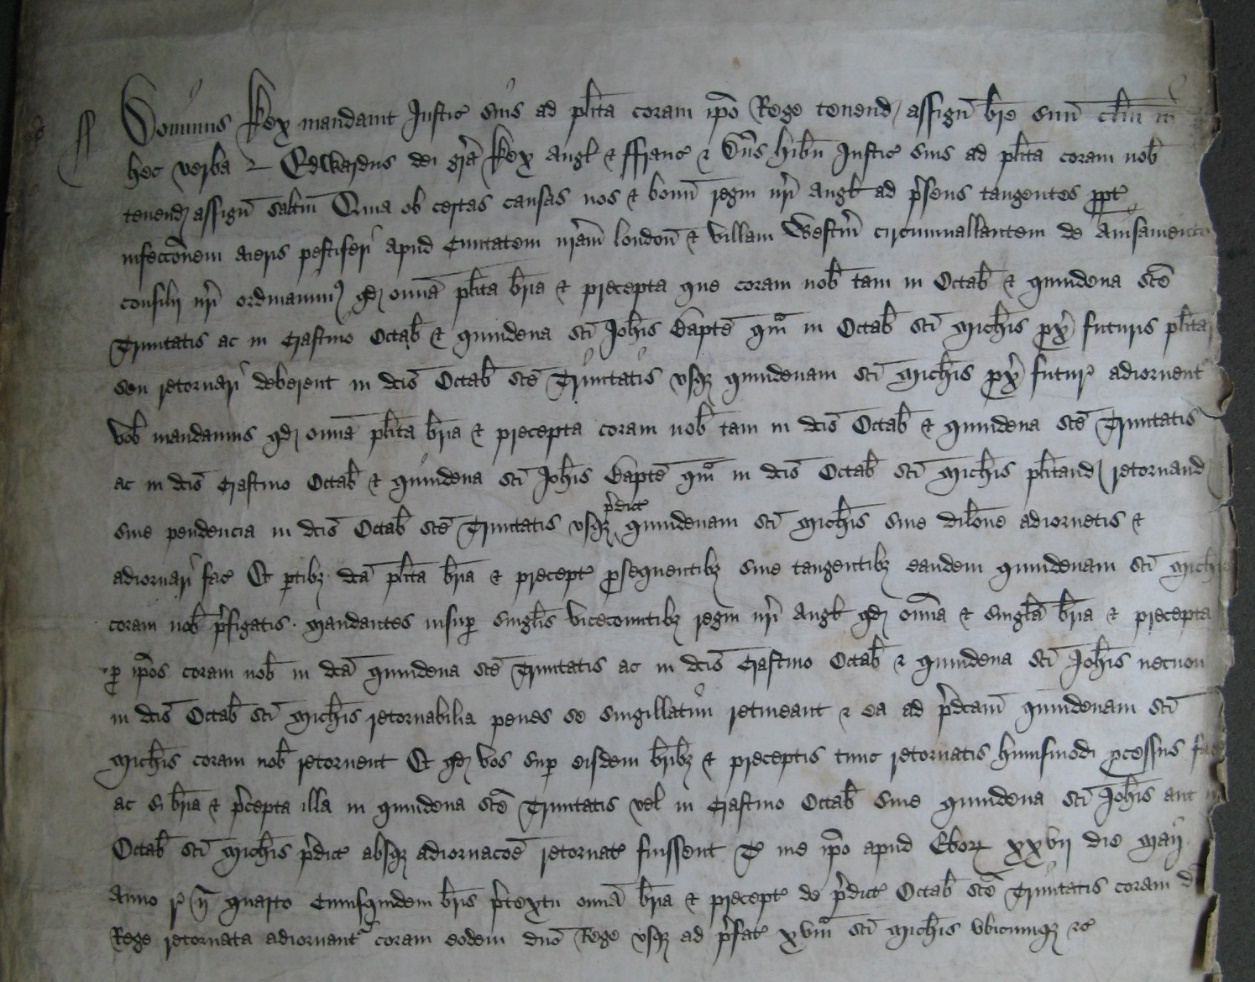 Dominus Rex mandavit Justic' suis ad pl'ita coram ip'o Rege tenend' assign' br'e suu' cl'm in
hec verba Edwardus dei gr'a Rex Angl' & Franc' & D'ns Hib'n Justic' suis ad pl'ita coram nob'
tenend' assign' sal'tm Quia ob certas causas nos & bonu' regni n'ri Angl' ad p'sens tangentes p'pt'
infecc'onem aeris pestiferi apud Civitatem n'ram london' & villam Westm' circumvallantem de avisamento
consilii n'ri ordinavim' qd' om'ia pl'ita br'ia & precepta que coram nob' tam in Octab' & quindena s'ce
Trinitatis ac in Crastino Octab' & quindena s'ci Joh'is Bapt'e q'm in Octab' s'ci Mich'is px' futuris pl'itari
seu retornari deberent in d'cis Octab' s'ce Trinitatis usq' quindenam s'ci Mich'is px' futur' adiornent'
vob' mandamus qd' om'ia pl'ita br'ia & precepta coram nob' tam in d'cis Octab' & quindena s'ce Trinitatis
ac in d'cis Crastino Octab' & quindena s'ci Joh'is Bapt'e q'm in d'cis Octab' s'ci Mich'is pl'itand' retornand'
sive pendencia in d'cis Octab' s'ce Trinitatis usq' p'dict' quindenam s'ci Mich'is sine dil'one adiornetis &
adiornari fac' Et p'tib' d'ca pl'ita br'ia & precept' p'sequentib' sive tangentib' eandem quindenam s'ci Mich'is
coram nob' p'figatis Mandantes insup' singl'is vicecomitib' regni n'ri Angl' qd' om'ia & singl'a br'ia & precepta
p' ip'os coram nob' in d'ca quindena s'ce Trinitatis ac in d'cis Crastino Octab' & quindena s'ci Joh'is necnon
in d'cis Octab' s'ci Mich'is retornabilia penes se singillatim retineant & ea ad p'dcam quindenam s'ci
Mich'is coram nob' retornent Et qd' vos sup' eisdem br'ib' & preceptis tunc retornatis hui'smodi p'cessus
ac si br'ia & p'cepta illa in quindena s'ce Trinitatis vel in Crastino Octab' sive quindena s'ci Joh'is aut
Octab' s'ci Mich'is p'dict' absq' adiornac'oe retornat' fuissent T' me ip'o apud Ebor' xxvii die Maij
Anno r' n' quarto Cuiusquidem br'is p'textu om'ia br'ia & precept' de p'dict' Octab' s'ce Trinitatis coram d'
Rege retornata adiornant' coram eodem d'no Rege usq' ad p'fat' xv'm s'ci Mich'is ubicumq' &c